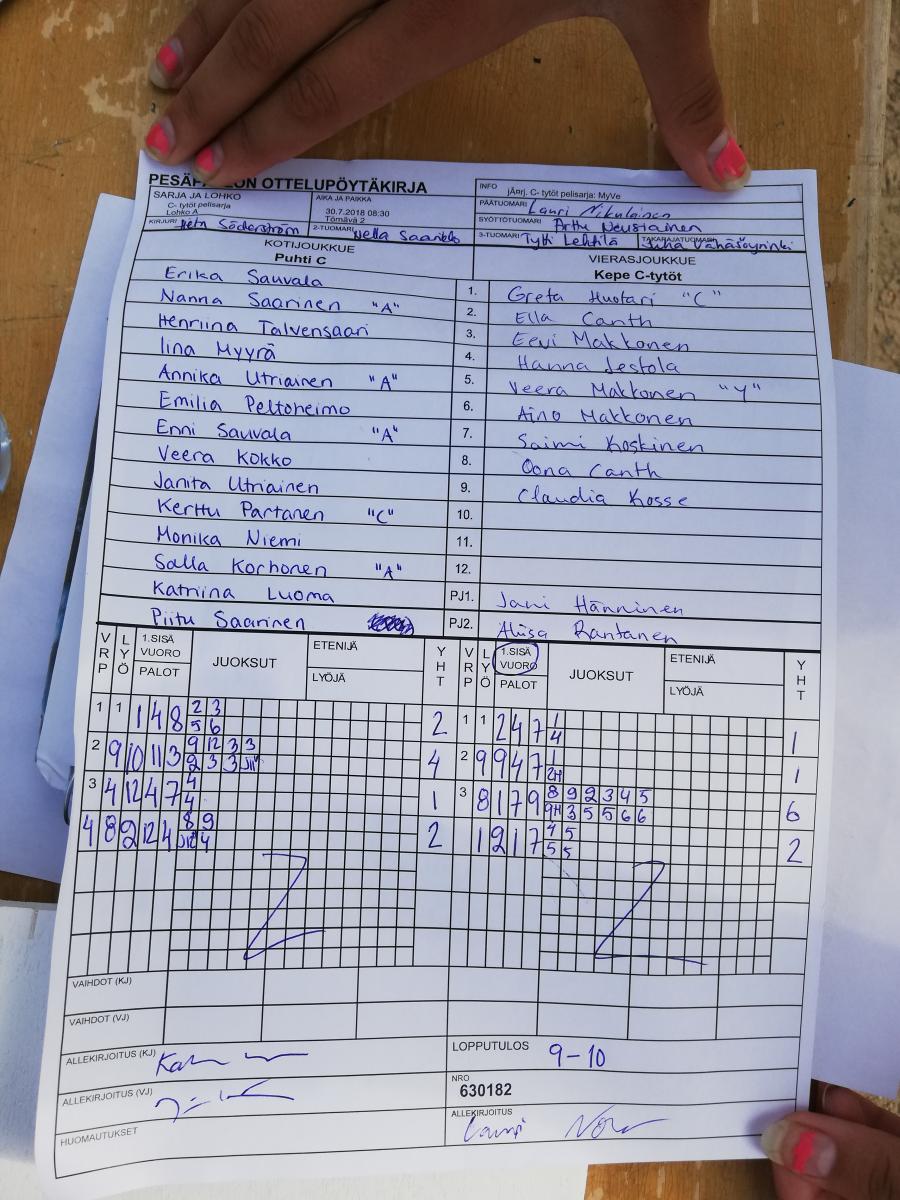 PESÄPALLON OTTELUPÖYTÄKIRJA
SARJA JA LOHKO
C- tytöt pelisarja
Lohko A
AIKA JA PAIKKA
30.7.2018 08:30
Tömävä 2
INFO
jÄrrj. C- tytöt pelisarja: MyVe
PÄÄTUOMARI Lauri Nikulainen
SYÖTTÖTUOMARI Arttu Neustainen
KIRJURI Heta Söderström
2-TUOMARI Nella Saarikko
3-TUOMARI Tytti Lehtilä
TAKARAJATUOMARI Juha Vähäsöyrinki
KOTIJOUKKUE
Puhti C
VIERASJOUKKUE
Kepe C-tytöt
Erika Sauvala 1. Greta Huotari "C"
Nanna Saarinen "A" 2. Ella Canth
Henriina Talvensaari 3. Eevi Makkonen
Iina Myyrä 4. Hanna Jestola
Annika Utriainen "A" 5. Veera Makkonen "Y"
Emilia Peltoheimo 6. Aino Makkonen
Enni Sauvala "A" 7. Saimi Koskinen
Veera Kokko 8. Oona Canth
Janita Utriainen 9. Claudia Kosse
Kerttu Partanen "C" 10.
Monika Niemi 11.
Salla Korhonen "A" 12.
Katriina Luoma PJ1. Jani Hänninen
Piitu Saarinen PJ2. Aliisa Rantanen
VRP LYÖ 1.SISÄ VUORO PALOT JUOKSUT ETENIJÄ LYÖJÄ YHT VRP LYÖ 1.SISÄ VUORO PALOT JUOKSUT ETENIJÄ LYÖJÄ YHT
1 1 1 4 8 2 3 2 1 1 2 4 7 1 1
5 6 4
2 9 10 11 3 9 12 3 3 4 2 9 9 4 7 1 1
2 3 3 2H
3 4 12 4 7 4 1 3 8 1 7 9 8 9 2 3 4 5 6
4 9H 3 5 5 6 6
4 8 2 12 4 8 9 2 1 2 1 7 4 5 2
4 5 5
VAIHDOT (KJ)
VAIHDOT (VJ)
ALLEKIRJOITUS (KJ)
LOPPUTULOS 9-10
ALLEKIRJOITUS (VJ)
NRO
630182
HUOMAUTUKSET
ALLEKIRJOITUS
Lauri